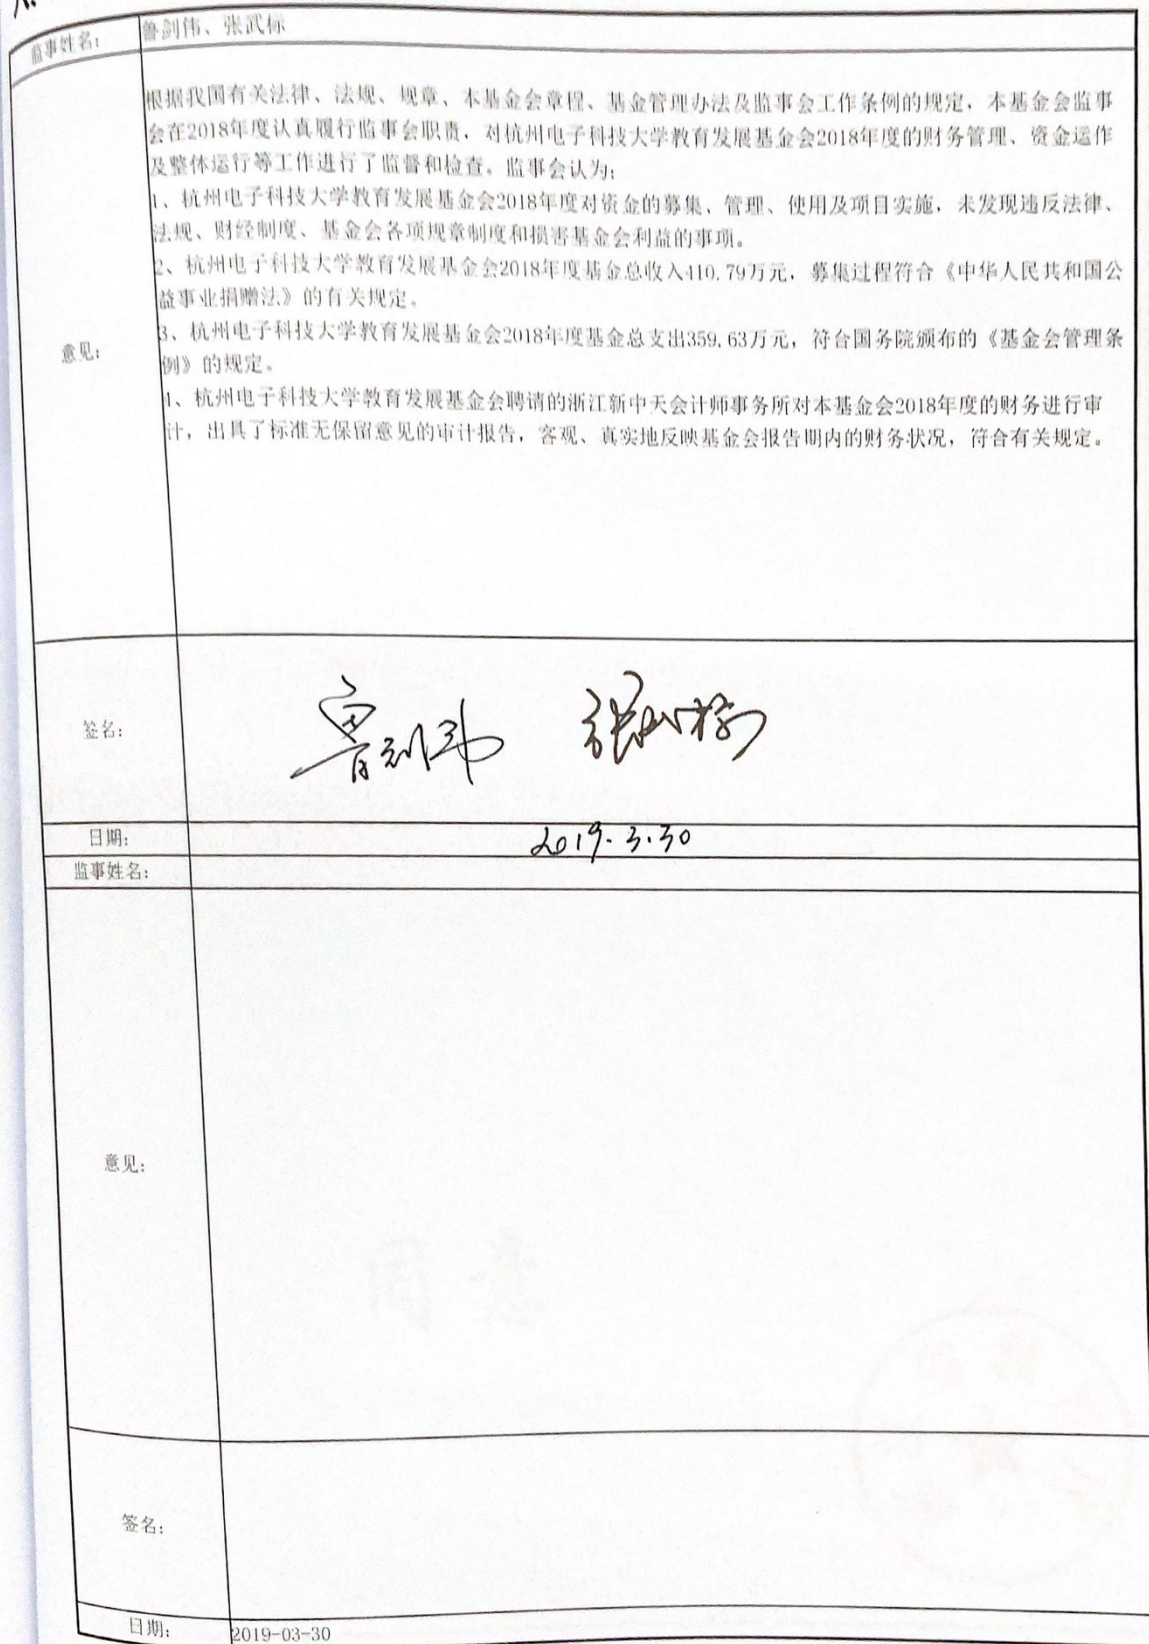 监事姓名：
鲁剑伟、张武标
根据我国有关法律、法规、规章、本基金会章程、基金管理办法及监事会工作条例的规定，本基金会监事
会在2018年度认真履行监事会职责，对杭州电子科技大学教育发展基金会2018年度的财务管理、资金运作
及整体运行等工作进行了监督和检查。监事会认为：
1、杭州电子科技大学教育发展基金会2018年度对资金的募集、管理、使用及项目实施，未发现违反法律、
法规、财经制度、基金会各项规章制度和损害基金会利益的事项。
2、杭州电子科技大学教育发展基金会2018年度基金总收入410.79万元，募集过程符合《中华人民共和国公
益事业捐赠法》的有关规定。
意见：
3、杭州电子科技大学教育发展基金会2018年度基金总支出359.63万元，符合国务院颁布的《基金会管理条
例》的规定。
4、杭州电子科技大学教育发展基金会聘请的浙江新中天会计师事务所对本基金会2018年度的财务进行审
计，出具了标准无保留意见的审计报告，客观、真实地反映基金会报告期内的财务状况，符合有关规定。
签名：
鲁剑伟 张武标
日期：
2019.3.30
监事姓名：
意见：
签名：
日期：
2019-03-30